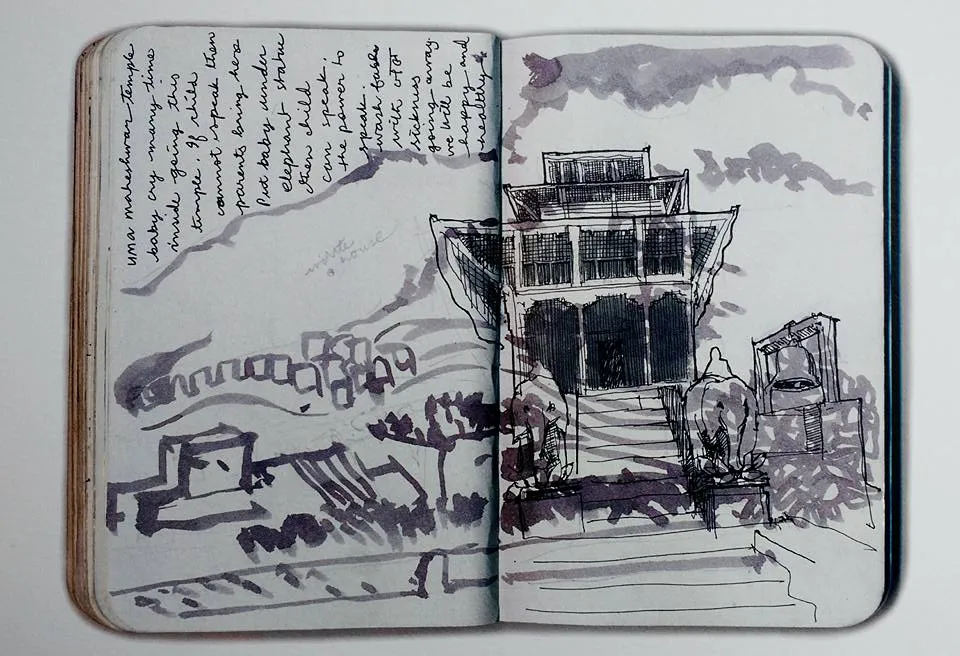 uma maheshwar temple
baby cry many time
inside going this
timple. if child
cannot speak then
parents bring here
Put baby under
elephant statue
then child
can speak.
the power to
speak.
wash
with
sickness
going away
we will be
happy and
healthy
a house